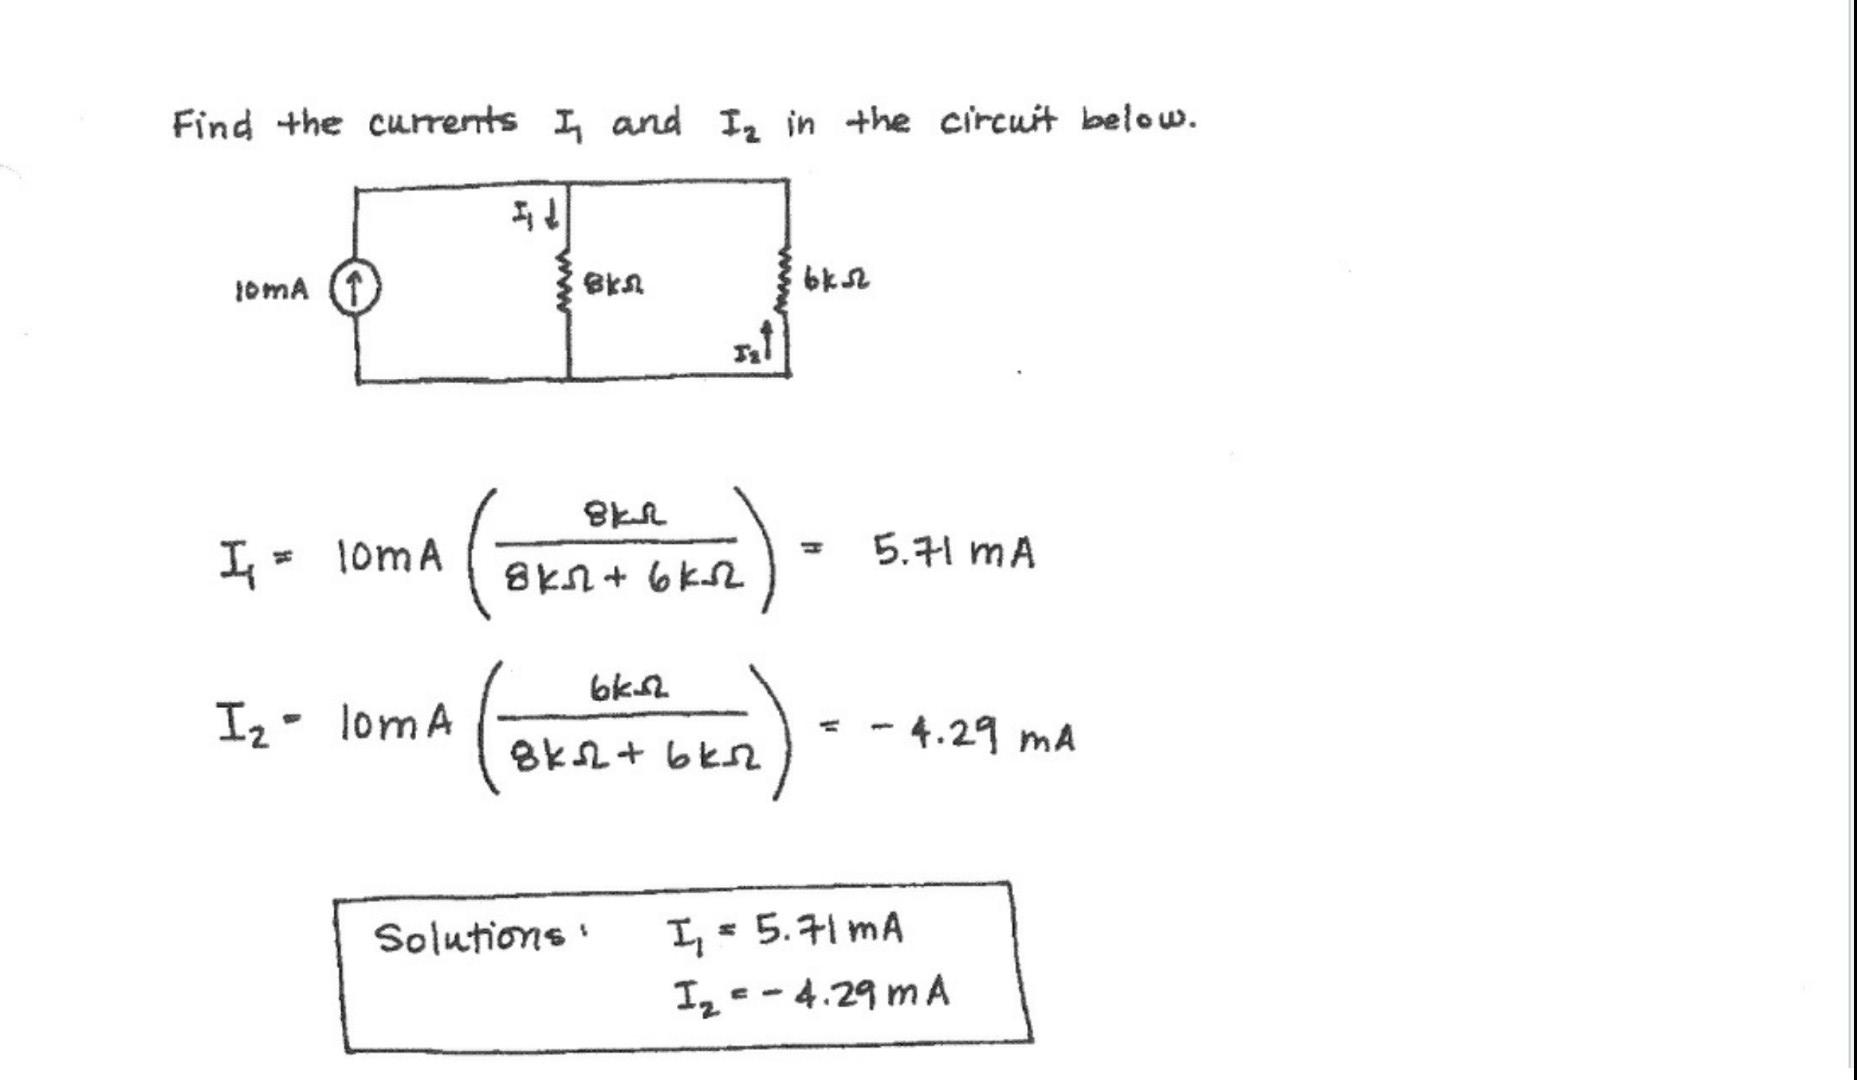 Find the currents I₁ and I₂ in the circuit below.
I₁ ↓
10mA
8kΩ
6kΩ
I₂ ↑
I₁ = 10mA (8kΩ / 8kΩ + 6kΩ) = 5.71 mA
I₂ = 10mA (6kΩ / 8kΩ + 6kΩ) = - 4.29 mA
Solutions: I₁ = 5.71 mA
I₂ = - 4.29 mA